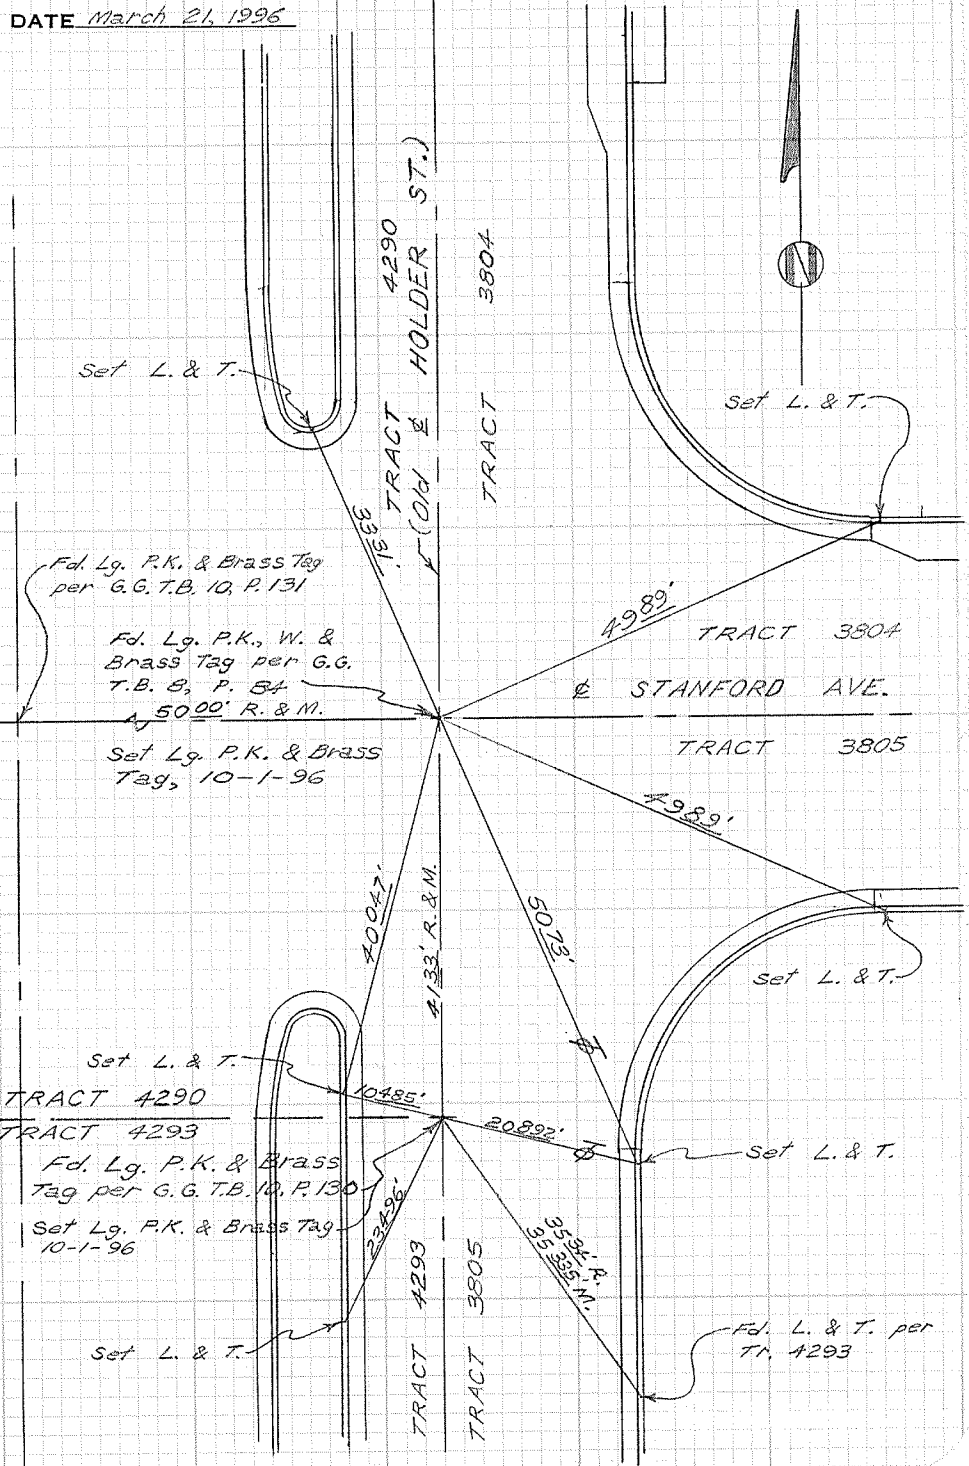 DATE March 21, 1996
TRACT 4290
(Old ℄ HOLDER ST.)
TRACT 3804
Set L. & T.
Set L. & T.
33.31'
Fd. Lg. P.K. & Brass Tag
per G.G. T.B. 10, P. 131
49.89'
TRACT 3804
Fd. Lg. P.K., W. &
Brass Tag per G.G.
T.B. 8, P. 84
50.00' R. & M.
℄ STANFORD AVE.
Set Lg. P.K. & Brass
Tag, 10-1-96
TRACT 3805
49.89'
40.047'
41.33' R. & M.
50.73'
Set L. & T.
Set L. & T.
TRACT 4290
10.485'
TRACT 4293
20.892'
Set L. & T.
Fd. Lg. P.K. & Brass
Tag per G.G. T.B. 10, P. 130
Set Lg. P.K. & Brass Tag
10-1-96
23.496'
35.34' R.
35.335' M.
TRACT 4293
TRACT 3805
Set L. & T.
Fd. L. & T. per
Tr. 4293